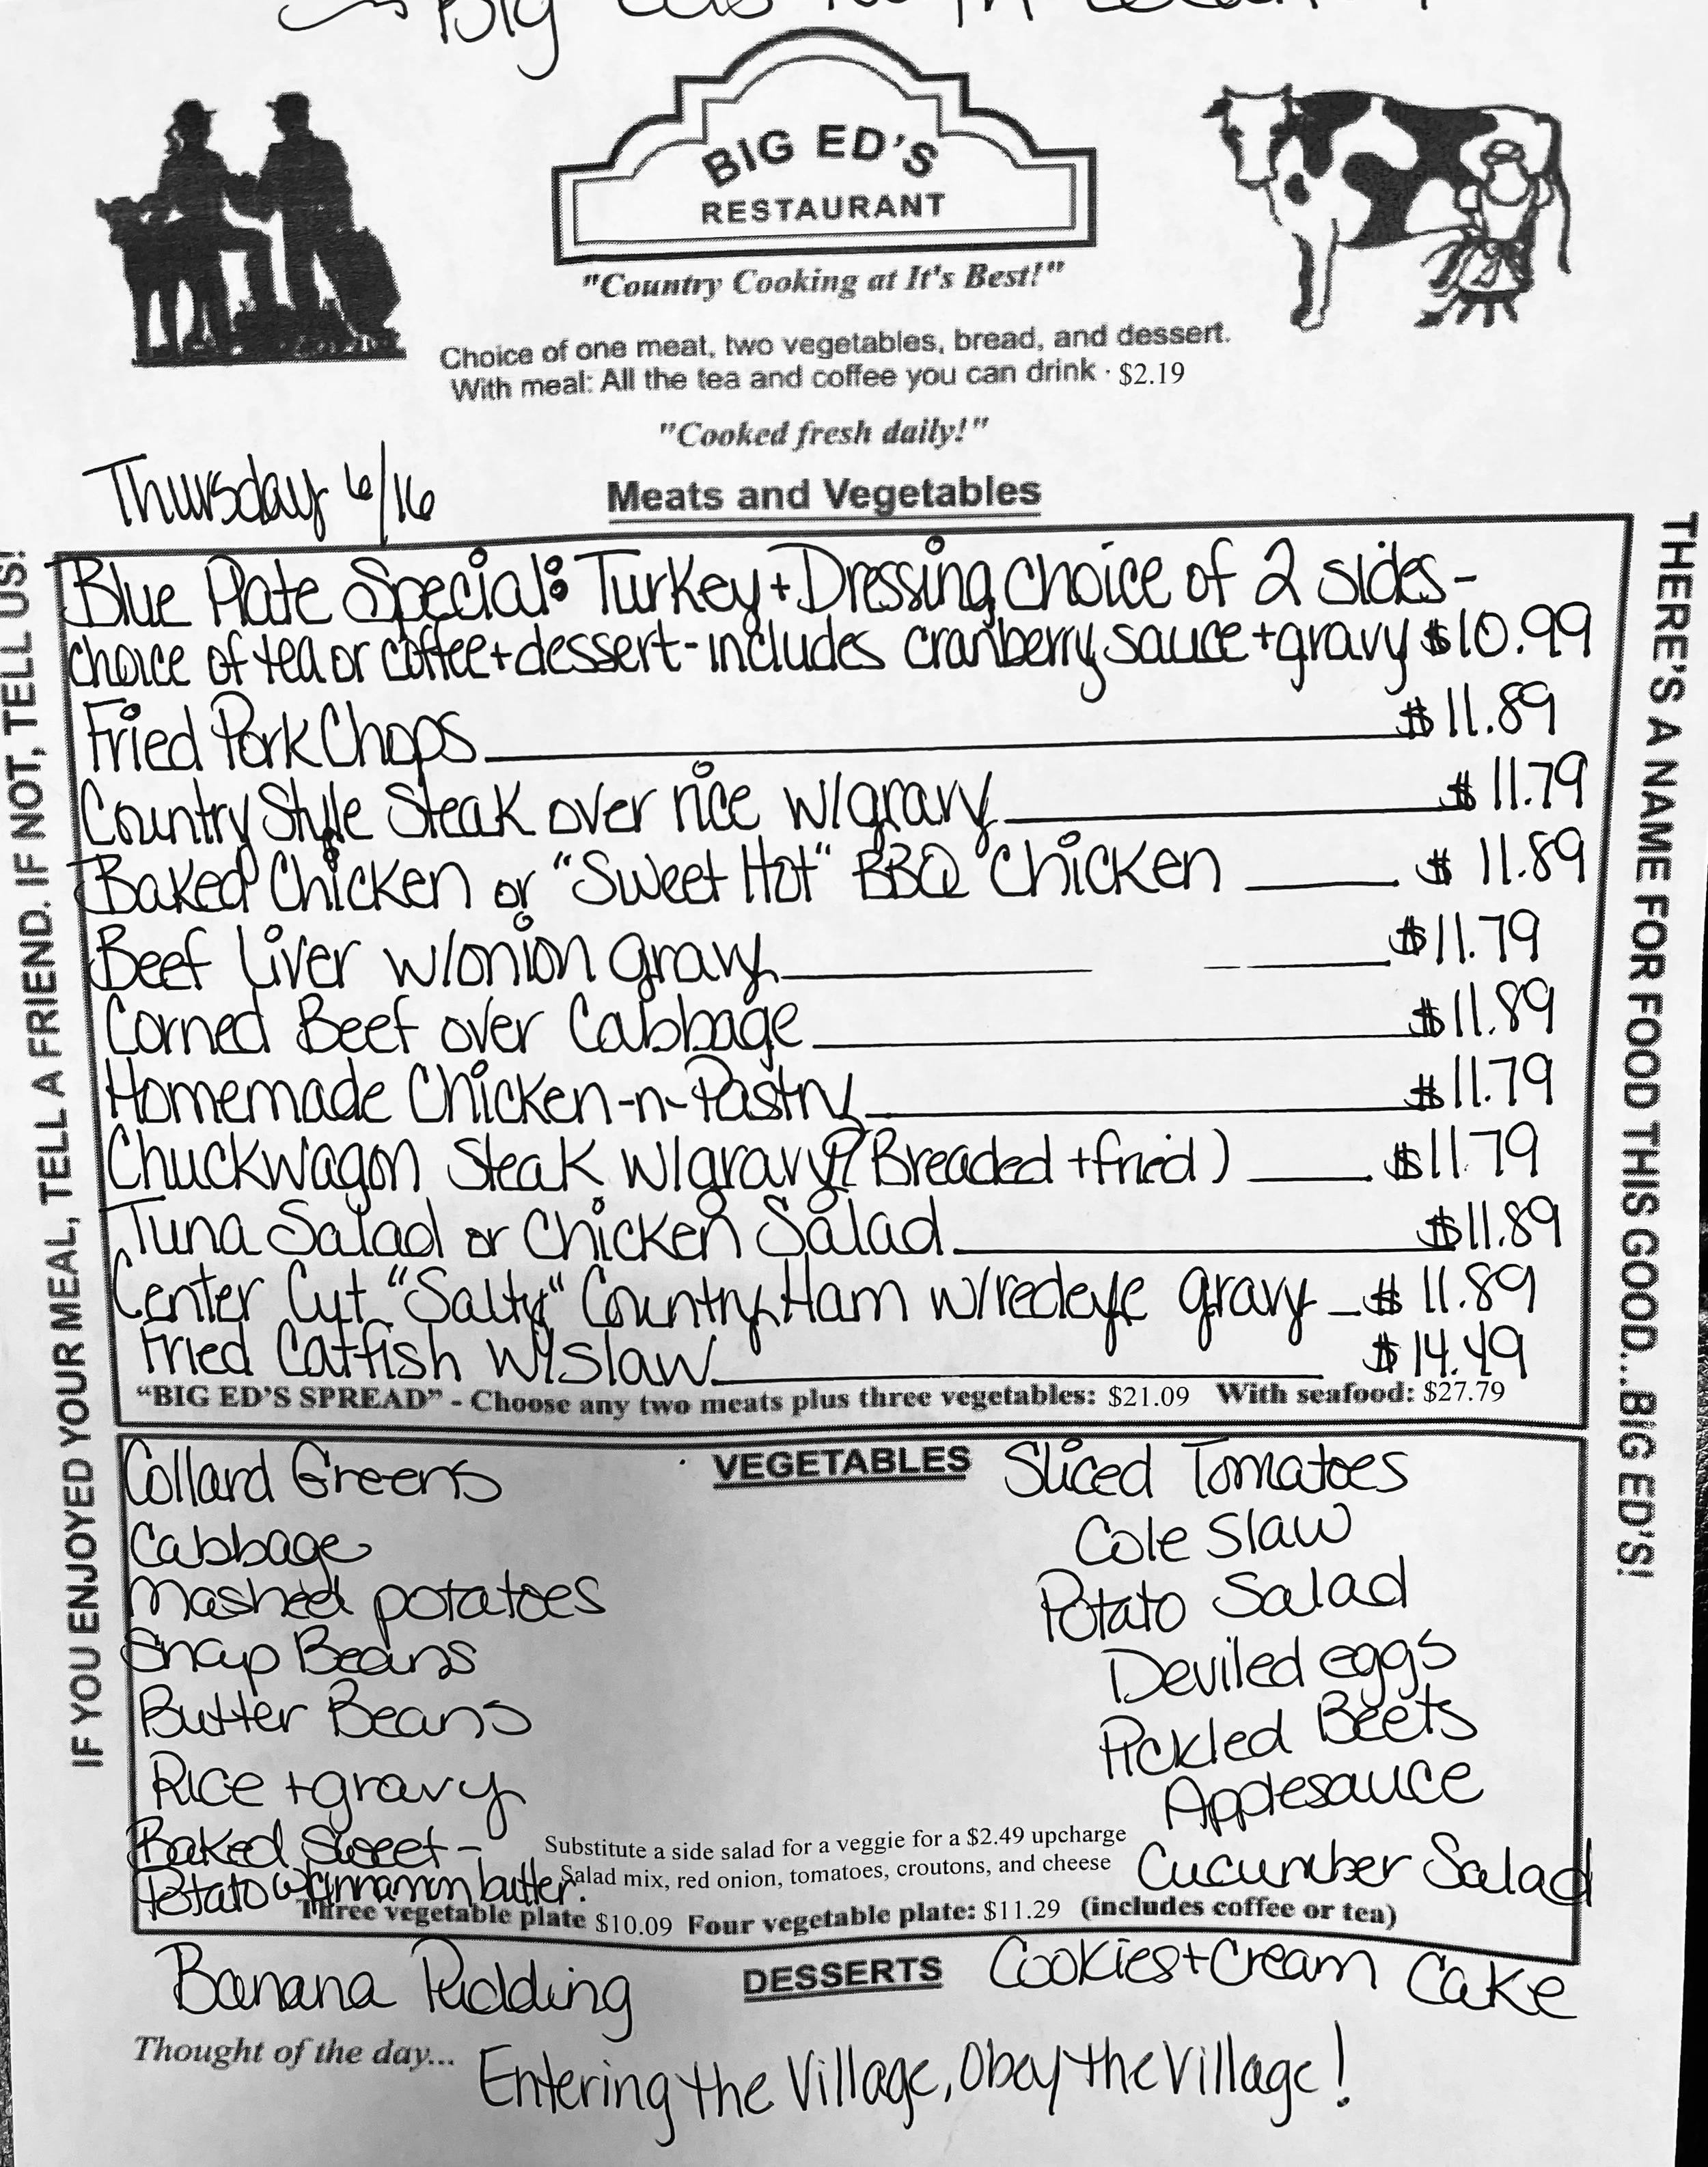 Big
BIG ED'S
RESTAURANT
"Country Cooking at It's Best!"
Choice of one meat, two vegetables, bread, and dessert.
With meal: All the tea and coffee you can drink · $2.19
"Cooked fresh daily!"
Thursday 6/16
Meats and Vegetables
Blue Plate Special: Turkey + Dressing, choice of 2 sides -
choice of tea or coffee + dessert - includes cranberry sauce + gravy $10.99
Fried Pork Chops $11.89
Country Style Steak over rice w/gravy $11.79
Baked Chicken or "Sweet Hot" BBQ Chicken $11.89
Beef Liver w/onion gravy $11.79
Corned Beef over Cabbage $11.89
Homemade Chicken-n-Pastry $11.79
Chuckwagon Steak w/gravy (Breaded + fried) $11.79
Tuna Salad or Chicken Salad $11.89
Center Cut "Salty" Country Ham w/redeye gravy $11.89
Fried Catfish w/slaw $14.49
"BIG ED'S SPREAD" - Choose any two meats plus three vegetables: $21.09 With seafood: $27.79
VEGETABLES
Collard Greens
Cabbage
Mashed potatoes
Snap Beans
Butter Beans
Rice + gravy
Baked Sweet -
Potato w/cinnamon butter.
Sliced Tomatoes
Cole Slaw
Potato Salad
Deviled eggs
Pickled Beets
Applesauce
Cucumber Salad
Substitute a side salad for a veggie for a $2.49 upcharge
Salad mix, red onion, tomatoes, croutons, and cheese
Three vegetable plate $10.09 Four vegetable plate: $11.29 (includes coffee or tea)
DESSERTS
Banana Pudding
Cookies + Cream Cake
Thought of the day... Entering the Village, Obey the Village!
IF YOU ENJOYED YOUR MEAL, TELL A FRIEND. IF NOT, TELL US!
THERE'S A NAME FOR FOOD THIS GOOD...BIG ED'S!